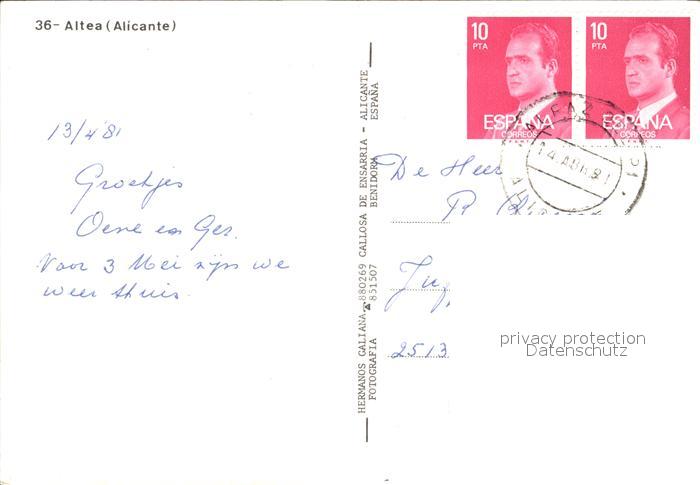 36- Altea (Alicante)
13/4 '81
Groetjes
Oene en Ger.
Voor 3 Mei zijn we
weer thuis.
HERMANOS GALIANA - 880269 CALLOSA DE ENSARRIA - ALICANTE
FOTOGRAFIA ☎ 851507 BENIDORM ESPAÑA
10 PTA
ESPAÑA
CORREOS
10 PTA
ESPAÑA
CORREOS
ALFAZ
14 ABR 81
De Heer
P.
2513
privacy protection
Datenschutz